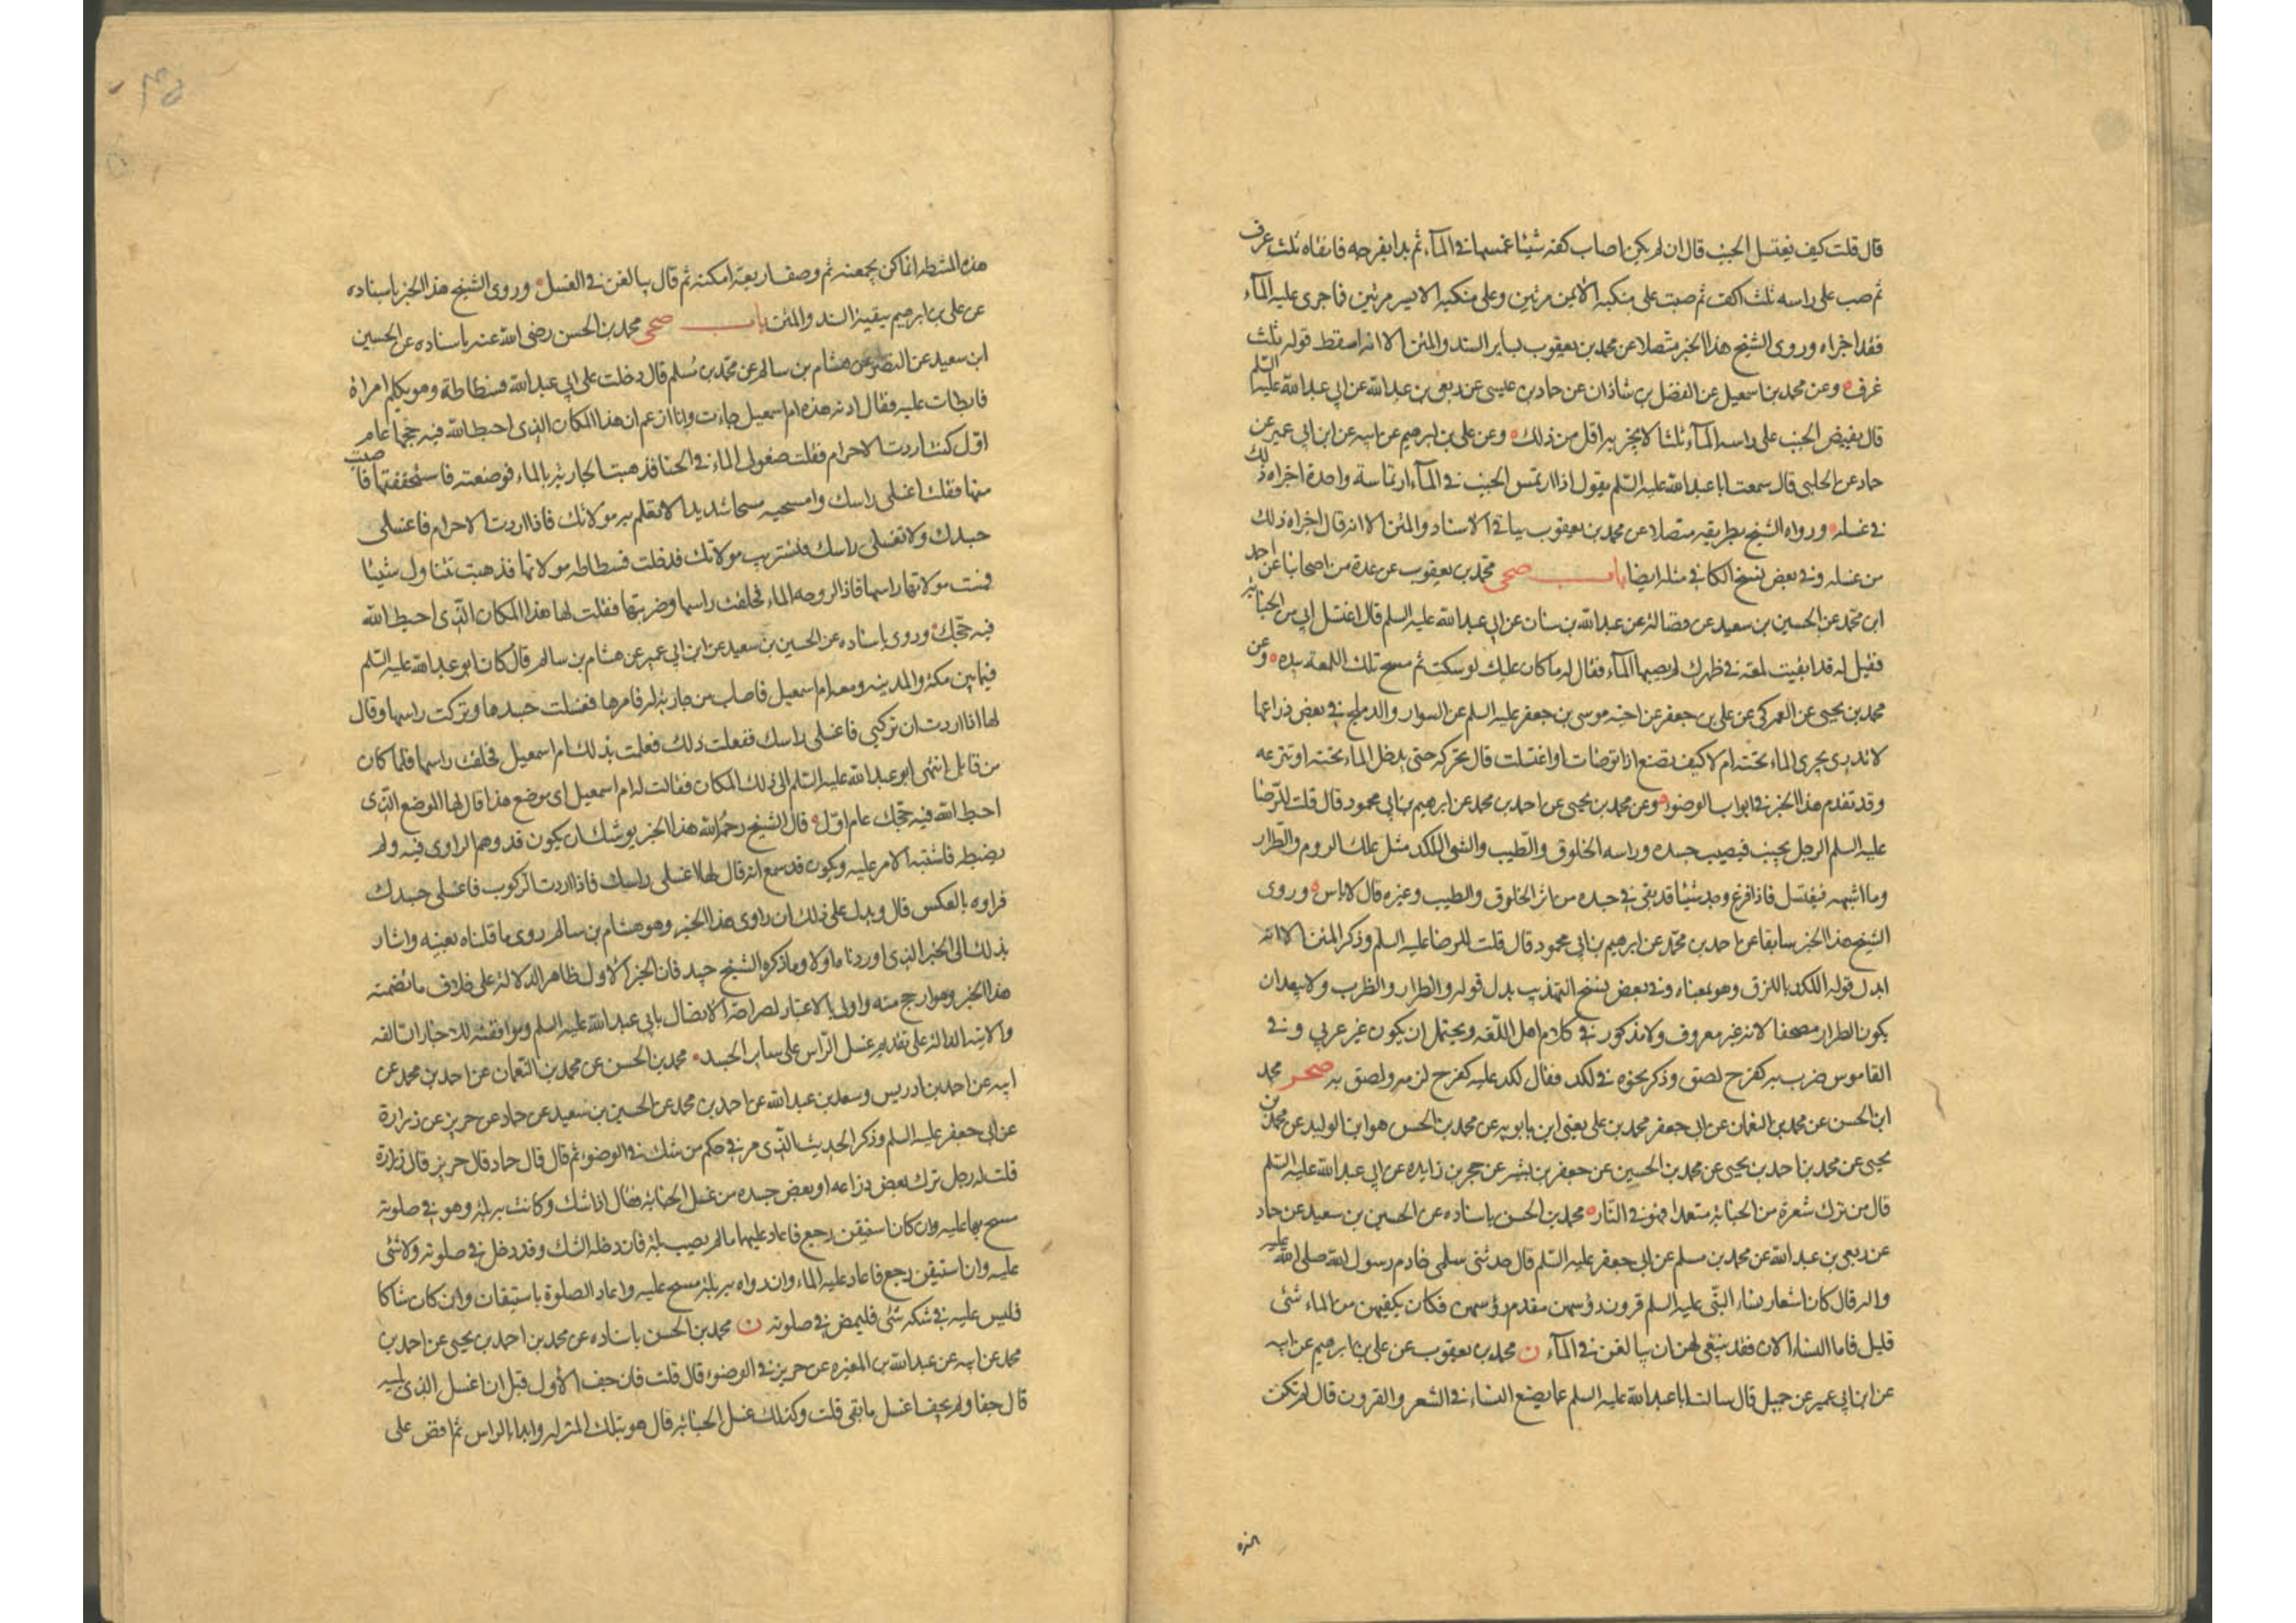 قال قلت كيف يغتسل الجنب قال ان لم يكن اصاب كفه شيئا غمسها في الماء ثم بدا بفرجه فانقاه ثلث غرف
ثم صب على راسه ثلث اكف ثم صب على منكبه الايمن مرتين وعلى منكبه الايسر مرتين فما جرى عليه الماء
فقد اجزاه وروى الشيخ هذا الخبر متصلا عن محمد بن يعقوب بساير السند والمتن الا انه اسقط قوله ثلث
غرف وعن محمد بن اسمعيل عن الفضل بن شاذان عن حماد بن عيسى عن ربعى بن عبد الله عن ابي عبد الله عليه السلم
قال يفيض الجنب على راسه الماء ثلثا لا يجزيه اقل من ذلك وعن على بن ابرهيم عن ابيه عن ابن ابي عمير عن
حماد عن الحلبى قال سمعت ابا عبد الله عليه السلم يقول اذا ارتمس الجنب في الماء ارتماسة واحدة اجزاه ذلك
في غسله ورواه الشيخ بطريقه متصلا عن محمد بن يعقوب بباقي الاسناد والمتن الا انه قال اجزاه ذلك
من غسله وفي بعض نسخ الكافي مثله ايضا باب صحى محمد بن يعقوب عن عدة من اصحابنا عن احمد
ابن محمد عن الحسين بن سعيد عن فضالة عن عبد الله بن سنان عن ابي عبد الله عليه السلم قال اغتسل ابي من الجنابة
فقيل له قد ابقيت لمعة في ظهرك لم يصبها الماء فقال له ما كان عليك لو سكت ثم مسح تلك اللمعة بيده وعن
محمد بن يحيى عن العمركى عن على بن جعفر عن اخيه موسى بن جعفر عليه السلم عن السوار والدملج في بعض ذراعها
لا تدرى يجرى الماء تحته ام لا كيف تصنع اذا توضات او اغتسلت قال تحركه حتى يدخل الماء تحته او تنزعه
وقد تقدم هذا الخبر في ابواب الوضوء وعن محمد بن يحيى عن احمد بن محمد عن ابرهيم بن ابي محمود قال قلت للرضا
عليه السلم الرجل يجنب فيصيب جسده وراسه الخلوق والطيب والشى اللكد مثل علك الروم والطرار
وما اشبهه فيغتسل فاذا فرغ وجد شيئا قد بقى في جسده من اثر الخلوق والطيب وغيره قال لا باس وروى
الشيخ هذا الخبر سابقا عن احمد بن محمد عن ابرهيم بن ابي محمود قال قلت للرضا عليه السلم وذكر المتن الا انه
ابدل قوله اللكد باللزق وهو بمعناه وفي بعض نسخ التهذيب بدل قوله والطرار والظرب ولا يبعد ان
يكون الطرار مصحفا لانه غير معروف ولا مذكور في كلام اهل اللغه ويحتمل ان يكون غير عربي وفي
القاموس ضرب به كفرح لصق وذكر نحوه في لكد فقال لكد عليه كفرح لزمه ولصق به صحر محمد
ابن الحسن عن محمد بن النعمان عن ابي جعفر محمد بن على يعنى ابن بابويه عن محمد بن الحسن هو ابن الوليد عن محمد بن
يحيى عن محمد بن احمد بن يحيى عن محمد بن الحسين عن جعفر بن بشير عن حجر بن زايده عن ابي عبد الله عليه السلم
قال من ترك شعرة من الجنابة متعمدا فهو في النار محمد بن الحسن باسناده عن الحسين بن سعيد عن حماد
عن ربعى بن عبد الله عن محمد بن مسلم عن ابي جعفر عليه السلم قال حدثتنى سلمى خادم رسول الله صلى الله عليه
واله قال كان اشعار نساء النبى عليه السلم قرون رؤسهن مقدم رؤسهن فكان يكفيهن من الماء شئ
قليل فاما النساء الان فقد ينبغى لهن ان يبالغن في الماء ن محمد بن يعقوب عن على بن ابرهيم عن ابيه
عن ابن ابي عمير عن جميل قال سالت ابا عبد الله عليه السلم عما يصنع النساء في الشعر والقرون قال لم تكن
هذه
هذه المشطه انما كن يجمعنه ثم وصف اربعة امكنة ثم قال يبالغن في الغسل وروى الشيخ هذا الخبر باسناده
عن على بن ابرهيم ببقية السند والمتن باب صحى محمد بن الحسن رضى الله عنه باسناده عن الحسين
ابن سعيد عن النضر عن هشام بن سالم عن محمد بن مسلم قال دخلت على ابي عبد الله فسطاطة وهو يكلم امراة
فابطات عليه فقال ادنه هذه ام اسمعيل جاءت وانا ازعم ان هذا المكان الذى احبط الله فيه حجها عام
اول كنت اردت الاحرام فقلت ضعوا لى الماء في الخبا فذهبت الجارية بالماء فوضعته فاستخففتها فاصبت
منها فقلت اغسلى راسك وامسحيه مسحا شديدا لا تعلم به مولاتك فاذا اردت الاحرام فاغسلى
جسدك ولا تغسلى راسك فتستريب مولاتك فدخلت فسطاطه مولاتها فذهبت تتناول شيئا
فمست مولاتها راسها فاذا لزوجه الماء فحلقت راسها وضربتها فقلت لها هذا المكان الذى احبط الله
فيه حجك وروى باسناده عن الحسين بن سعيد عن ابن ابي عمير عن هشام بن سالم قال كان ابو عبد الله عليه السلم
فيما بين مكة والمدينه ومعه ام اسمعيل فاصاب من جارية له فامرها فغسلت جسدها وتركت راسها وقال
لها اذا اردت ان تركبي فاغسلى راسك ففعلت ذلك فعلمت بذلك ام اسمعيل فحلقت راسها فلما كان
من قابل انتهى ابو عبد الله عليه السلم الى ذلك المكان فقالت له ام اسمعيل اى موضع هذا قال لها الموضع الذى
احبط الله فيه حجك عام اول قال الشيخ رحمه الله هذا الخبر يوشك ان يكون قد وهم الراوى فيه ولم
يضبطه فاشتبه الامر عليه ويكون قد سمع انه قال لها اغسلى راسك فاذا اردت الركوب فاغسلى جسدك
فراوه بالعكس قال ويدل على ذلك ان راوى هذا الخبر وهو هشام بن سالم روى ما قلناه بعينه واشار
بذلك الى الخبر الذى اوردناه اولا وما ذكره الشيخ جيد فان الخبر الاول ظاهر الدلالة على خلاف ما تضمنه
هذا الخبر وهو ارجح منه واولى بالاعتبار لصراحة الاتصال بابي عبد الله عليه السلم وموافقته للاخبار السالفه
والاتيه الدالة على تقديم غسل الراس على ساير الجسد محمد بن الحسن عن محمد بن النعمان عن احمد بن محمد عن
ابيه عن احمد بن ادريس وسعد بن عبد الله عن احمد بن محمد عن الحسين بن سعيد عن حماد عن حريز عن زرارة
عن ابي جعفر عليه السلم وذكر الحديث الذى مر في حكم من شك في الوضوء ثم قال قال حماد قال حريز قال زرارة
قلت له رجل ترك بعض ذراعه او بعض جسده من غسل الجنابة فقال اذا شك وكانت به بلة وهو في صلوته
مسح بها عليه وان كان استيقن رجع فاعاد عليهما ما لم يصب بلة فان دخله الشك وقد دخل في صلوته ولا شئ
عليه وان استيقن رجع فاعاد عليه الماء وان رواه به بلة مسح عليه واعاد الصلوة باستيقان وان كان شاكا
فليس عليه في شكه شئ فليمض في صلوته ن محمد بن الحسن باسناده عن محمد بن احمد بن يحيى عن احمد بن
محمد عن ابيه عن عبد الله بن المغيره عن حريز في الوضوء قال قلت فان جف الاول قبل ان اغسل الذى يليه
قال جف او لم يجف اغسل ما بقى قلت وكذلك غسل الجنابة قال هو بتلك المنزله وابدا بالراس ثم افض على